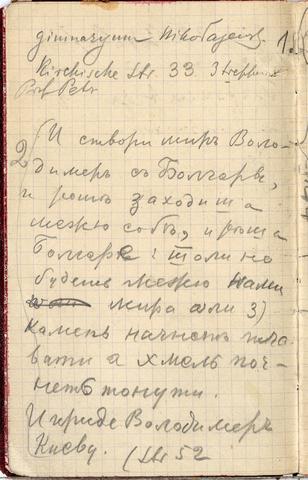 gimnazyum Nikołajew. 1.
Kirchische Str 33 3 treppen
Prof Petr
2 (И створи миръ Воло-
димеръ съ Болгары,
и ротѣ заходиша
межю собѣ, и рѣша
Болгаре: толи не
будеть межю нами
мира оли 3)
камень начнеть пла-
вати а хмель поч-
нетъ тонути.
И приде Володимеръ
Киеву. (Str 52